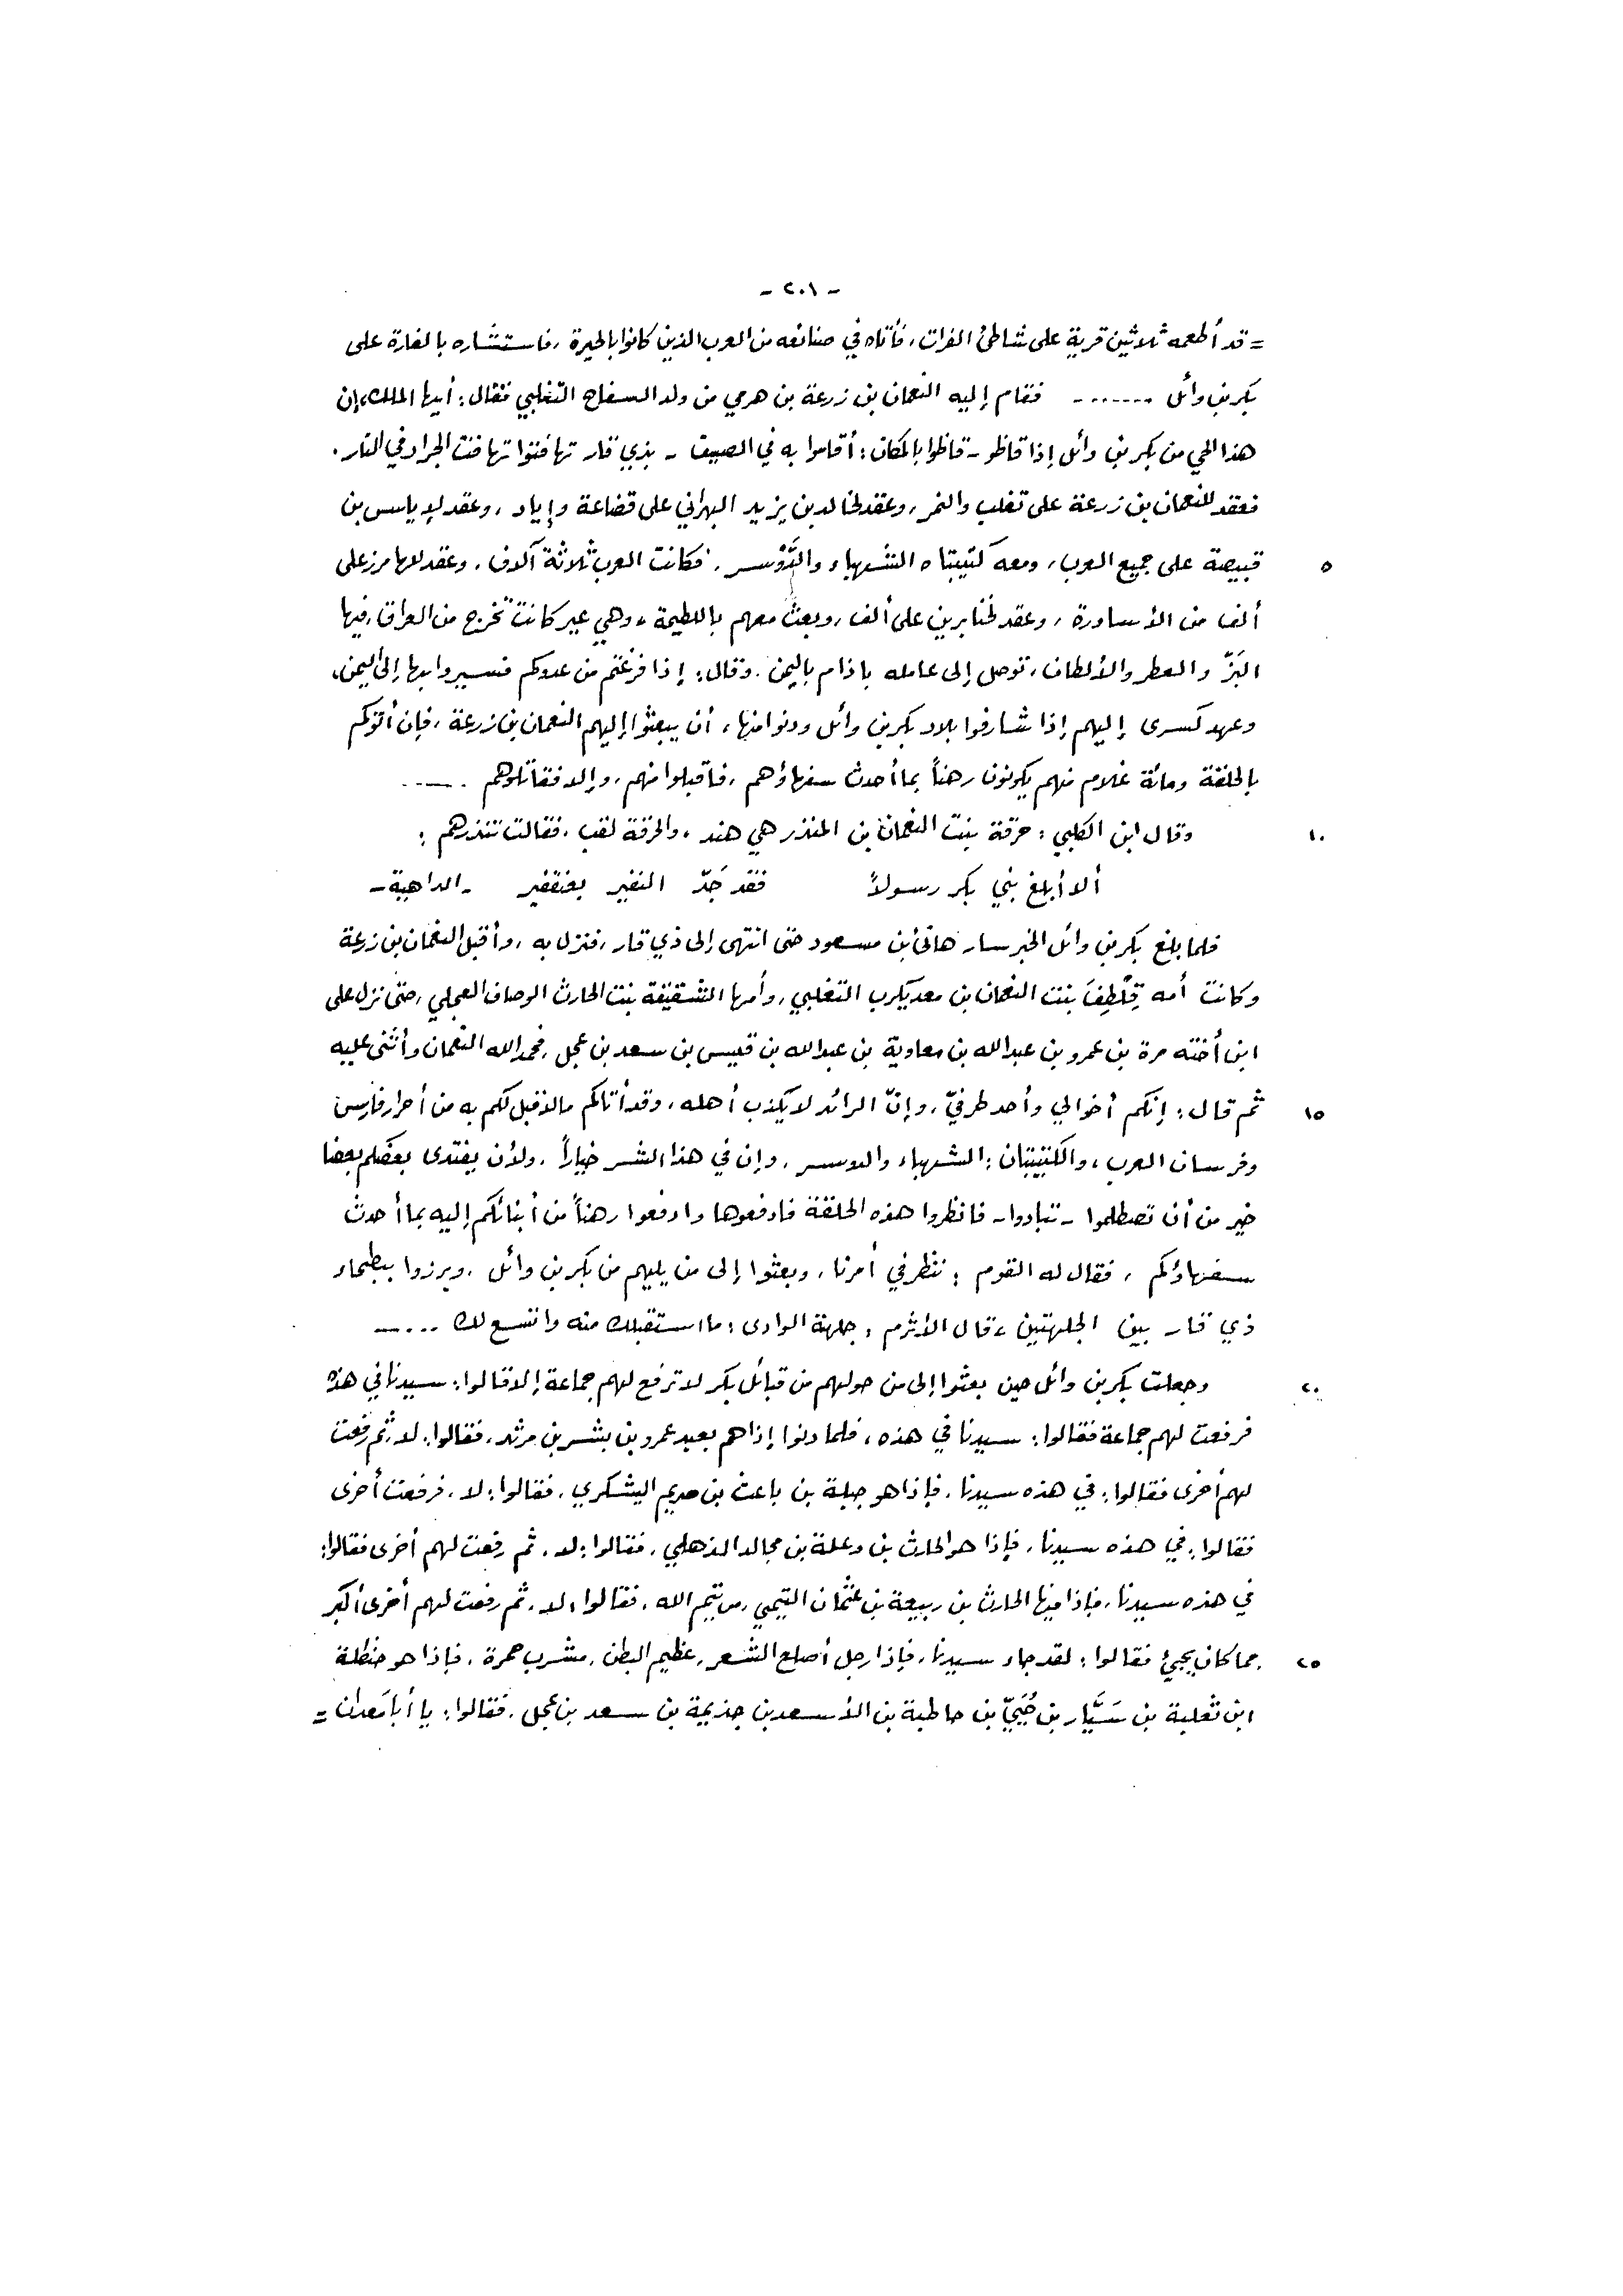 - ٢٠١ -
= قد أطعمه ثلاثين قرية على شاطئ الفرات، فأتاه في صنائعه من العرب الذين كانوا بالحيرة، فاستشاره بالغارة على
بكر بن وائل ....... فقام إليه النعمان بن زرعة بن هرمي من ولد السفاح التغلبي فقال: أيها الملك، إن
هذا الحي من بكر بن وائل إذا قاظو - قاظوا بالمكان: أقاموا به في الصيف - بذي قار تهافتوا تهافت الجراد في النار.
فعقد للنعمان بن زرعة على تغلب والنمر، وعقد لخالد بن يزيد البهراني على قضاعة وإياد، وعقد لإياس بن
٥ قبيصة على جميع العرب، ومعه كتيبتاه الشهباء والدَّوْسر. فكانت العرب ثلاثة آلاف. وعقد للهامرز على
ألف من الأساورة، وعقد لخنابرين على ألف، وبعث معهم باللطيمة، وهي عير كانت تخرج من العراق، فيها
البَزّ والعطر والألطاف، توصل إلى عامله باذام باليمن. وقال: إذا فرغتم من عدوكم فسيروا بها إلى اليمن،
وعهد كسرى إليهم إذا شارفوا بلاد بكر بن وائل ودنوا منها، أن يبعثوا إليهم النعمان بن زرعة، فإن أتوكم
بالحلقة ومائة غلام منهم يكونون رهناً بما أحدث سفهاؤهم، فاقبلوا منهم، وإلا فقاتلوهم .....
١٠ وقال ابن الكلبي: حرقة بنت النعمان بن المنذر هي هند، والحرقة لقب، فقالت تنذرهم:
ألا أبلغ بني بكر رسولاً فقد جَدّ النفير بعنقفير - الداهية -
فلما بلغ بكر بن وائل الخبر سار هانئ بن مسعود حتى انتهى إلى ذي قار، فنزل به، وأقبل النعمان بن زرعة
وكانت أمه قِلْطِفَ بنت النعمان بن معد يكرب التغلبي، وأمها الشقيقة بنت الحارث الوصاف العجلي، حتى نزل على
ابن أخته مرة بن عمرو بن عبدالله بن معاوية بن عبدالله بن قيس بن سعد بن عجل، فحمد الله النعمان وأثنى عليه
١٥ ثم قال: إنكم أخوالي وأحد طرفيّ، وإنّ الرائد لا يكذب أهله، وقد أتاكم مالا قبل لكم به من أحرار فارس
وفرسان العرب، والكتيبتان: الشهباء والدوسر، وإن في هذا الشر خياراً، ولأن يفتدى بعضكم بعضا
خير من أن تصطلموا - تبادوا - فانظروا هذه الحلقة فادفعوها وادفعوا رهناً من أبنائكم إليه بما أحدث
سفهاؤكم، فقال له القوم: ننظر في أمرنا، وبعثوا إلى من يليهم من بكر بن وائل، وبرزوا ببطحاء
ذي قار بين الجلهتين، قال الأثرم: جلهة الوادى: ما استقبلك منه واتسع لك .....
٢٠ وجعلت بكر بن وائل حين بعثوا إلى من حولهم من قبائل بكر لا ترفع لهم جماعة إلا قالوا: سيدنا في هذه
فرفعت لهم جماعة فقالوا: سيدنا في هذه، فلما دنوا إذا هم بعبد عمرو بن بشر بن مرثد، فقالوا: لا، ثم رفعت
لهم أخرى فقالوا: في هذه سيدنا، فإذا هو جبلة بن باعث بن صريم اليشكري، فقالوا: لا، فرفعت أخرى
فقالوا: في هذه سيدنا، فإذا هو الحارث بن وعلة بن مجالد الذهلي، فقالوا: لا. ثم رفعت لهم أخرى فقالوا:
في هذه سيدنا، فإذا فيها الحارث بن ربيعة بن عثمان التيمي من تيم الله، فقالوا: لا، ثم رفعت لهم أخرى أكبر
٢٥ مما كان يجيئ فقالوا: لقد جاء سيدنا، فإذا رجل أصلع الشعر، عظيم البطن، مشرب حمرة، فإذا هو حنظلة
ابن ثعلبة بن سَيَّار بن حُيَيّ بن حاطبة بن الأسعد بن جذيمة بن سعد بن عجل، فقالوا: يا أبا مَعدان =